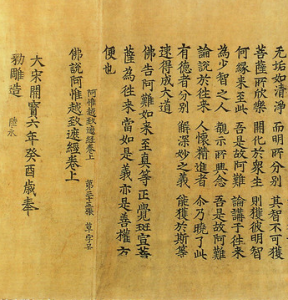 无垢如清淨 而明所分別 其智不可獲
菩薩所歌樂 開化於衆生 則獲彼明智
何緣來至此 吾是故阿難 論講于往來
為少智之人 觀示所興念 吾是故阿難
論說於往來 人懷精進者 令乃曉了此
有德者分別 解深妙之義 能獲於斯等
速得成大道
佛告阿難如來至真等正覺班宣菩
薩為往來當如是義亦是善權方
便也
阿惟越致遮經卷上 第 張 草字号
佛說阿惟越致遮經卷上
大宋開寶六年癸酉歲奉
勑雕造 陸永